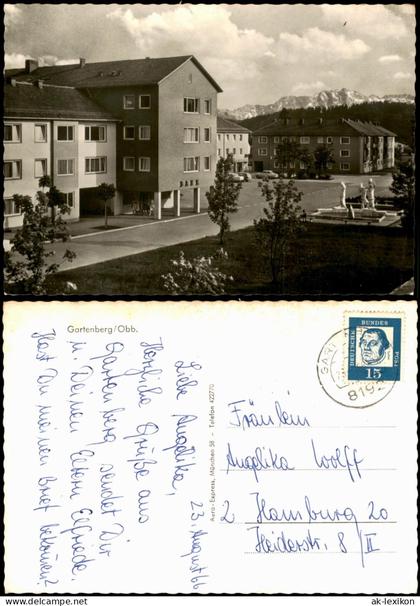 BANK
Gartenberg/Obb.
Liebe Angelika,
23. August 66
Herzliche Grüße aus
Gartenberg sendet Dir
u. Deinen Eltern Elfriede.
Hast Du meinen Brief bekommen?
Aero-Express, München 58 - Telefon 42770
DEUTSCHE
BUNDES
POST
15
GART
819
Fräulein
Angelika Wolff
2 Hamburg 20
Heiderstr. 8/II
© www.ak-ansichtskarten.de
ak-lexikon